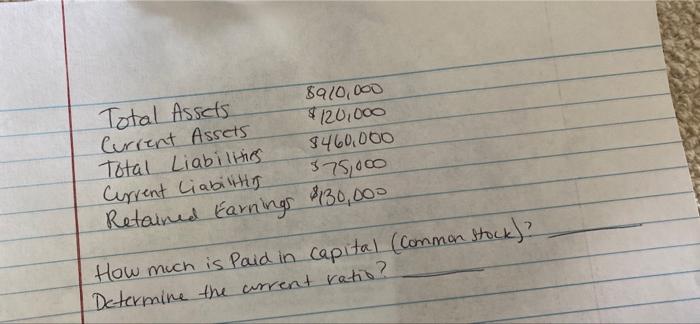 Total Assets $910,000
Current Assets $120,000
Total Liabilities $460,000
Current Liabilities $75,000
Retained Earnings $130,000
How much is Paid in Capital (Common Stock)? ______
Determine the current ratio? ______